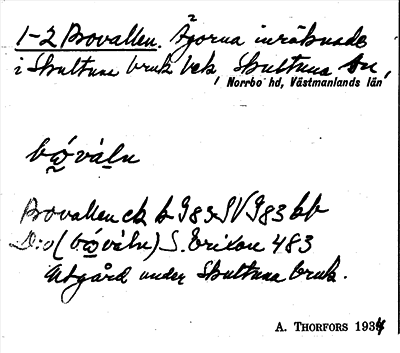 1-2 Brovallen. Ägorna inräknade
i Skultuna bruk bek, Skultuna sn,
Norrbo hd, Västmanlands län
bŏ́vàln
Brovallen ek b J983 SV J983 bb
D:o (bŏvàln) S. Erixon 483
Utgård under Skultuna bruk.
A. THORFORS 1934